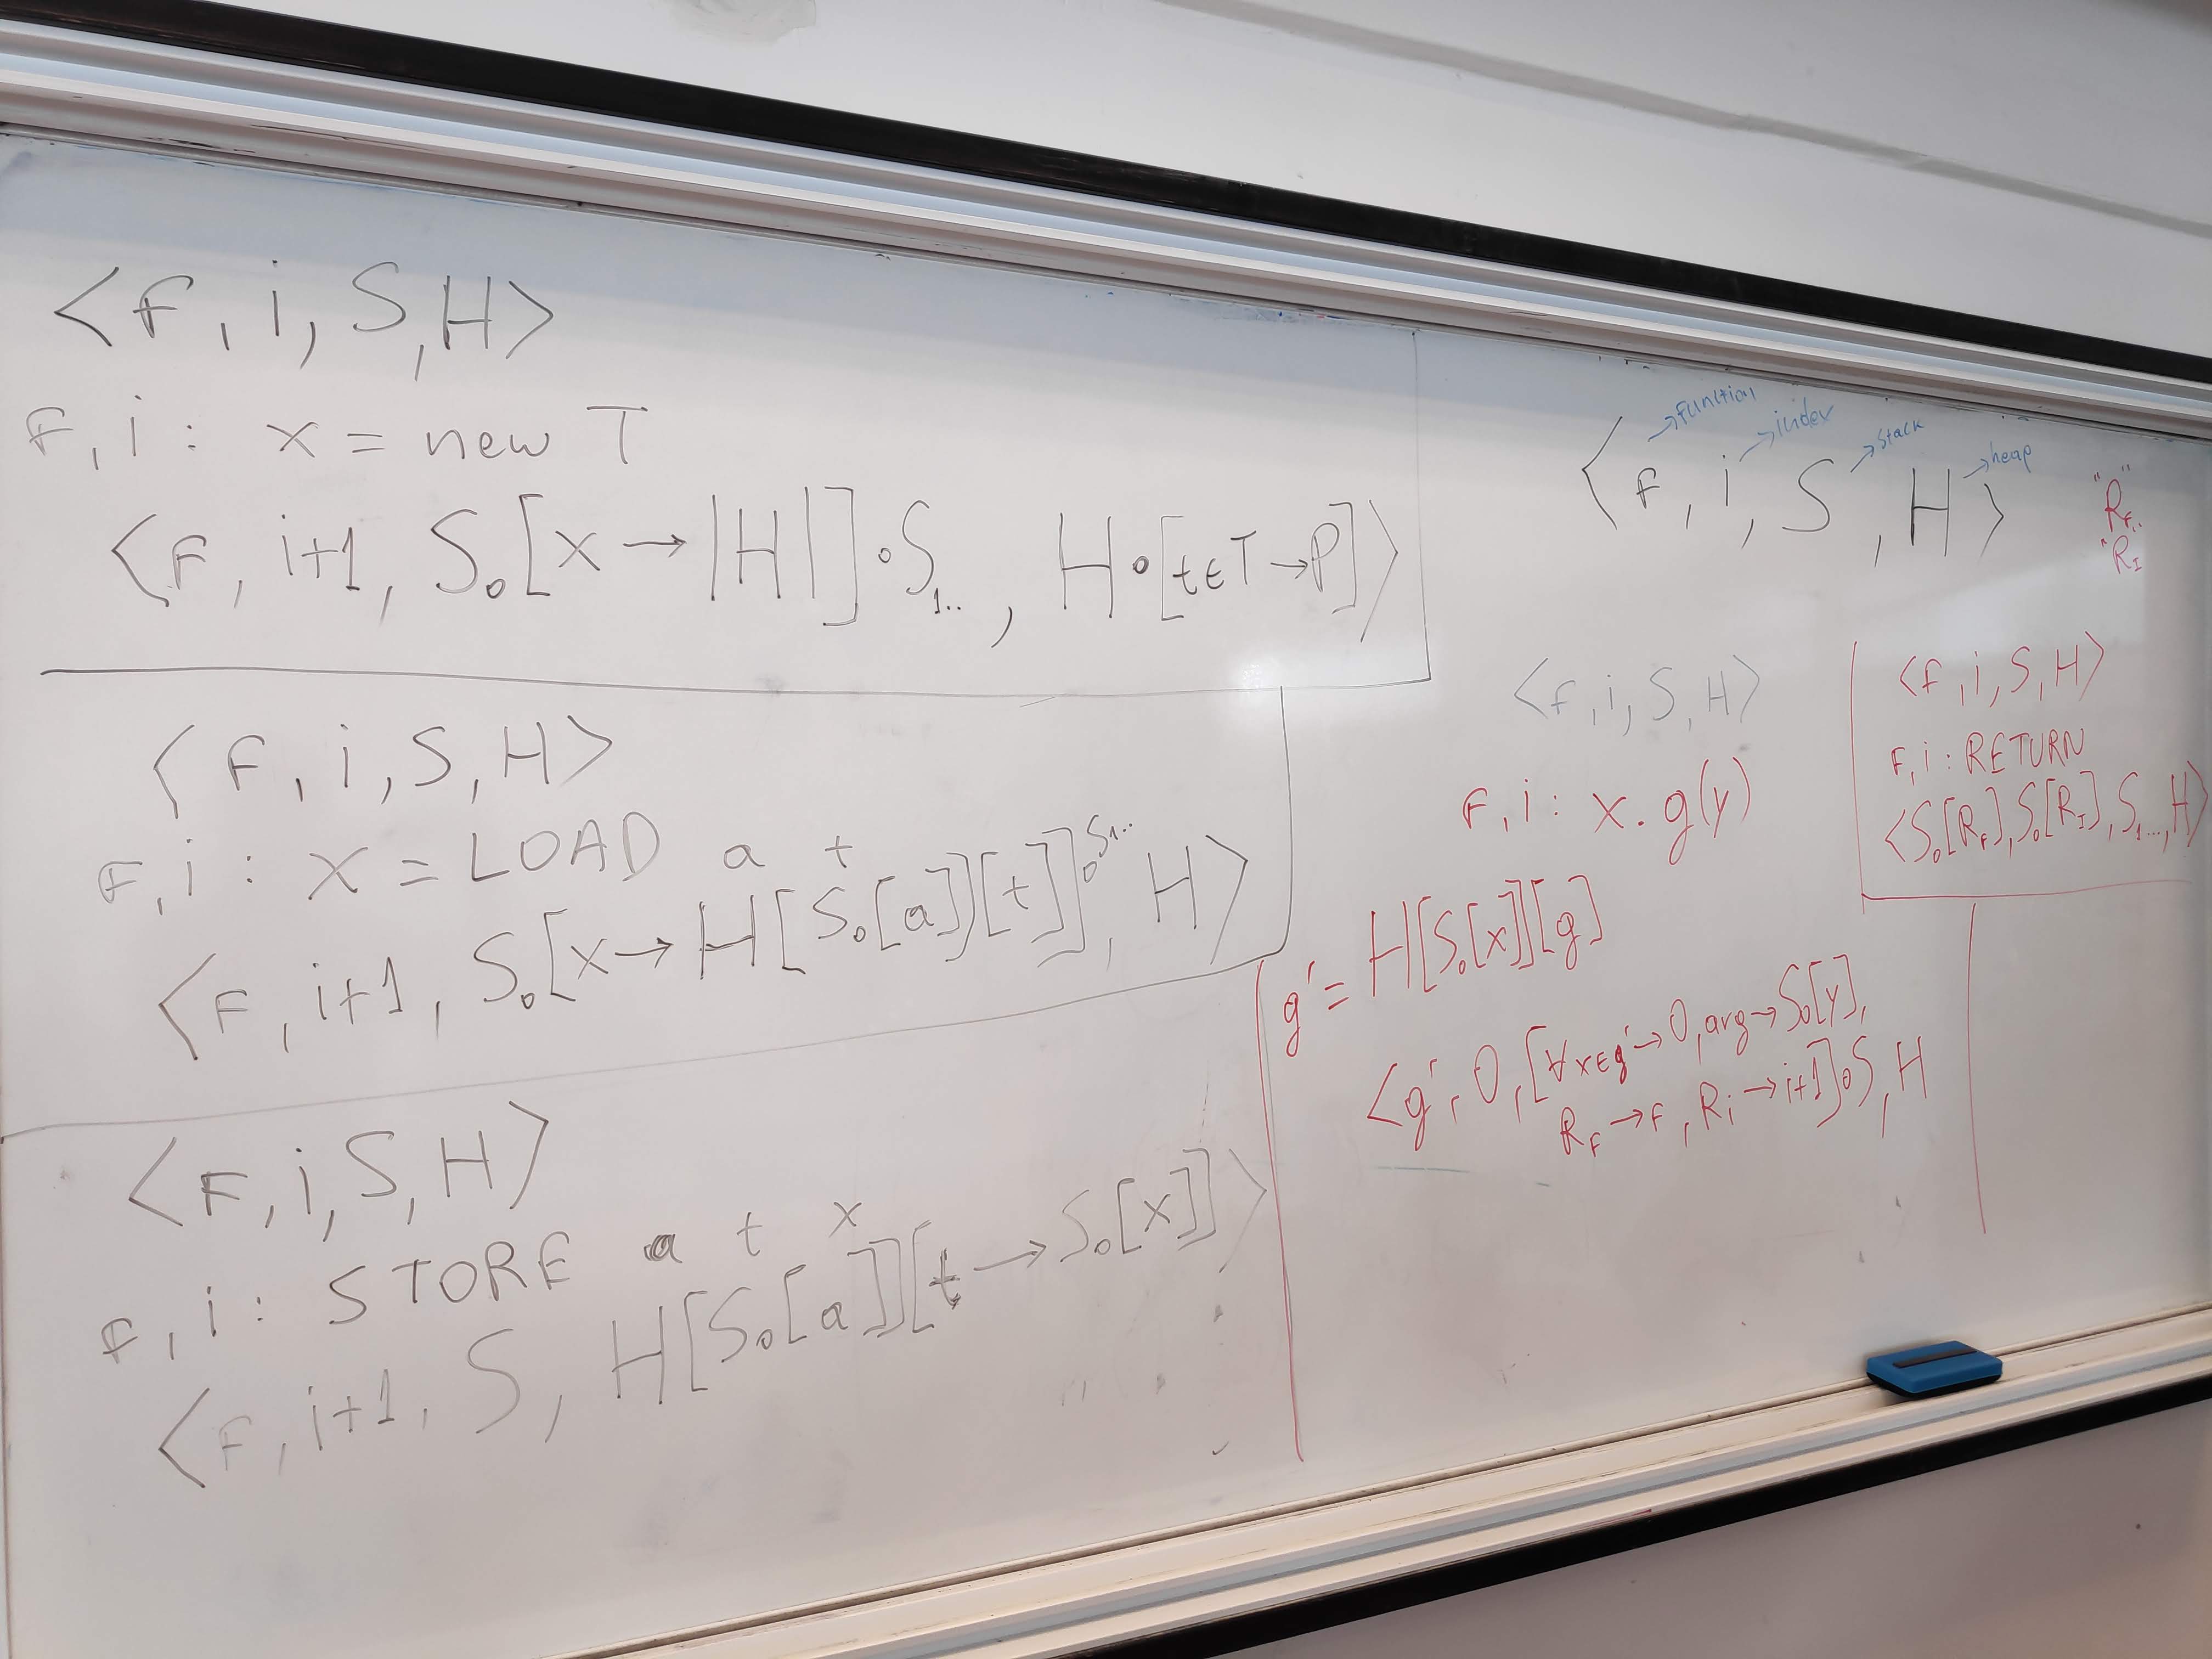 ⟨F, i, S, H⟩
F, i : x = new T
⟨F, i+1, S₀[x → |H|]∘S₁.., H∘[t∈T → P]⟩
⟨F, i, S, H⟩
F, i : x = LOAD a t
⟨F, i+1, S₀[x → H[S₀[a]][t]]∘S₁.., H⟩
⟨F, i, S, H⟩
F, i : STORE a t x
⟨F, i+1, S, H[S₀[a]][t → S₀[x]]⟩
→function →index →stack →heap
⟨F, i, S, H⟩
"R_F"
"R_I
⟨F, i, S, H⟩
F, i : x.g(y)
g' = H[S₀[x]][g]
⟨g', 0, [∀x∈g' → 0, arg → S₀[y],
R_F → F, R_i → i+1]∘S, H
⟨F, i, S, H⟩
F, i : RETURN
⟨S₀[R_F], S₀[R_I], S₁..., H⟩